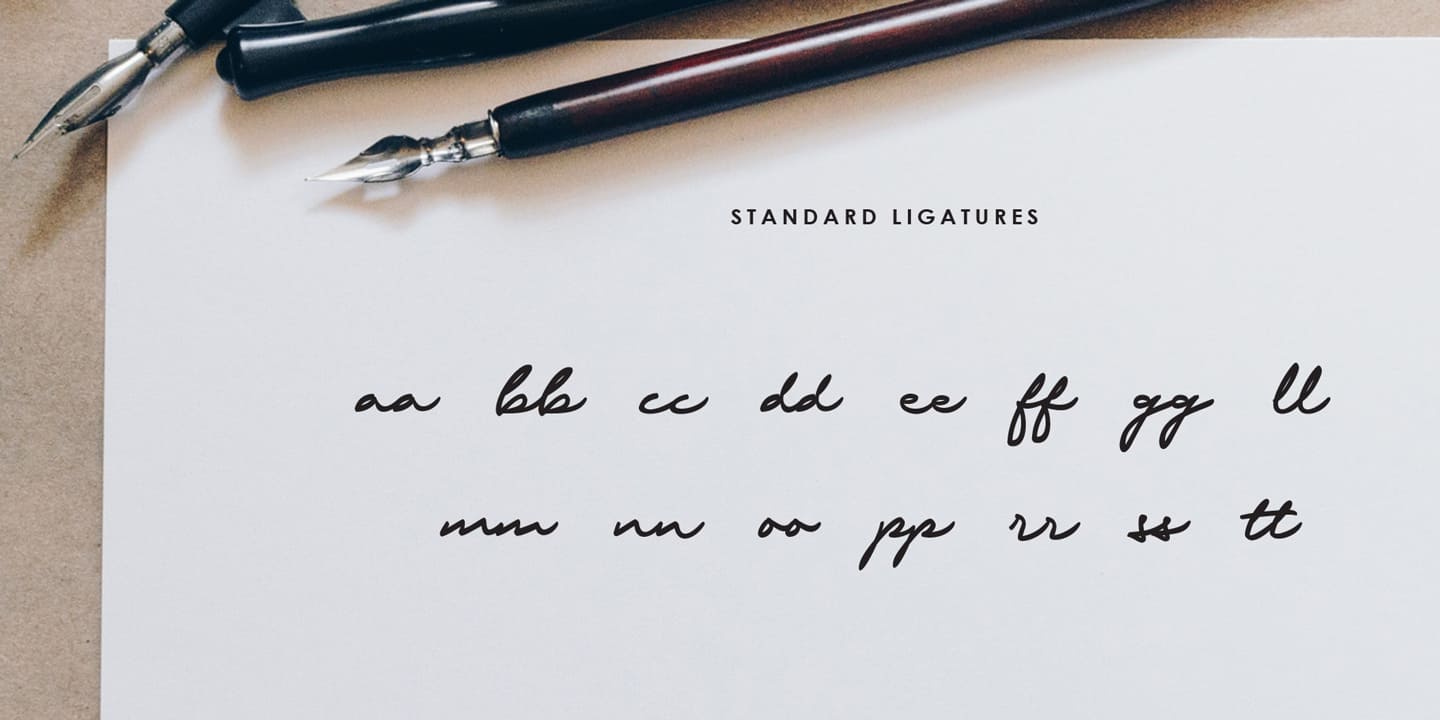 STANDARD LIGATURES
aa bb cc dd ee ff gg ll
mm nn oo pp rr ss tt